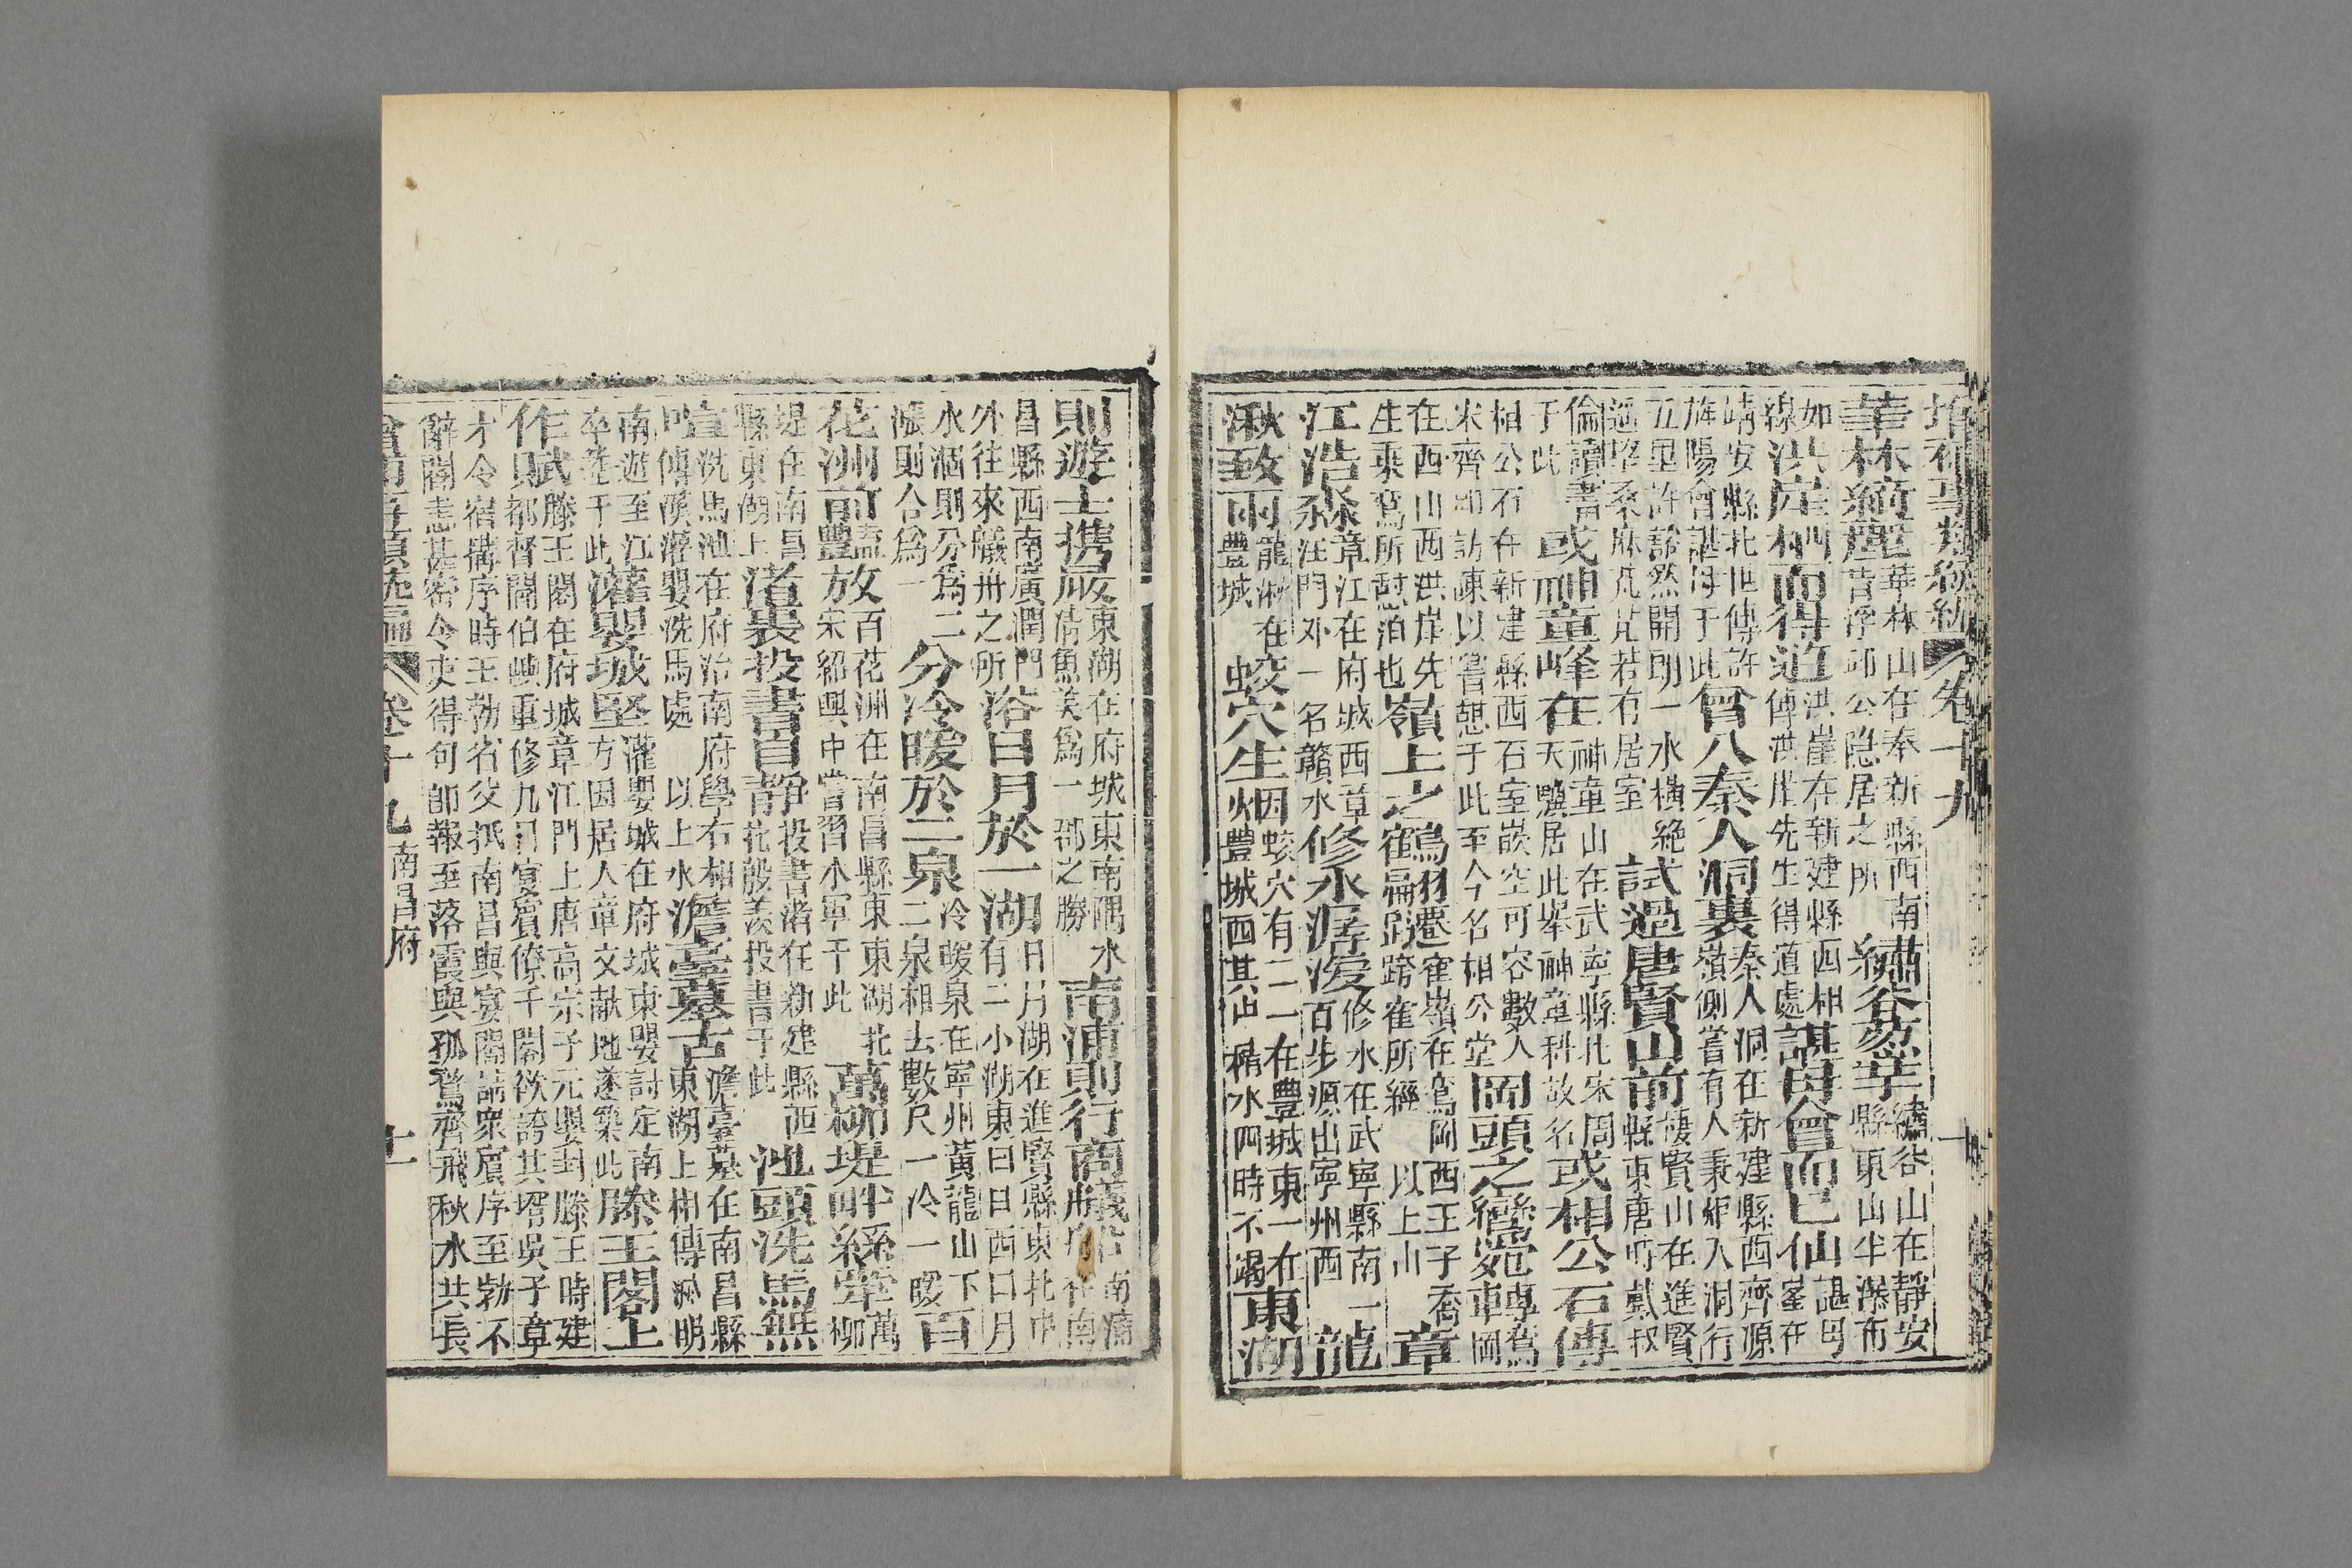 增補事類統編 卷十九
華林綺麗華林山在奉新縣西南昔浮邱公隱居之所繡谷芬華繡谷山在靜安縣東山半瀑布
如線洪崖栖而得道洪崖在新建縣西相傳洪崖先生得道處諶母會而已仙諶母峯在
靖安縣北世傳許旌陽會諶母于此曾入秦人洞裏秦人洞在新建縣西齊源嶺側嘗有人秉炬入洞行
五里許豁然開朗一水橫絶遥望桑麻若有居室試過唐賢山前棲賢山在進賢縣東唐時戴叔
倫讀書于此或神童峰在神童山在武寧縣北宋周天驥居此舉神童科故名或相公石傳
相公石在新建縣西石室嵌空可容數人宋齊邱訪陳以嘗憩于此至今名相公堂岡頭之鸞宛轉鸞岡
在西山西洪崖先生乘鸞所憩泊也嶺上之鶴翩遷崔嶺在鸞岡西王子喬跨崔所經 以上山 章
江浩淼章江在府城西章江門外一名贛水修水潺湲修水在武寧縣南一百步源出寧州西龍
湫致雨龍湫在豐城蛟穴生烟蛟穴有二一在豐城東一在豐城西其出水四時不竭東湖
則遊士攜嚴東湖在府城東南隅水清魚美爲一郡之勝南浦則行商艤船南浦在南
昌縣西南廣潤門外往來艤舟之所浴日月於一湖日月湖在進賢縣東北中有二小湖東曰日西曰月
水涸則分爲二漲則合爲一分冷暖於二泉冷暖泉在寧州黃龍山下二泉相去數尺一冷一暖百
花洲前百花洲在南昌縣東東湖北宋紹興中嘗習水軍于此萬柳堤畔絲牽萬柳
堤在南昌縣東湖上渚裏投書自靜投書渚在新建縣西北殷羨投書于此池頭洗馬無
喧洗馬池在府治南府學右相傳漢灌嬰洗馬處 以上水澹臺墓古澹臺墓在南昌縣東湖上相傳滅明
南遊至江卒葬于此灌嬰城堅灌嬰城在府城東嬰討定南方因居人章文獻地遂築此滕王閣上
作賦滕王閣在府城章江門上唐高宗子元嬰封滕王時建都督閻伯嶼重修九月宴賓僚千閣欲誇其壻吳子章
才令宿搆序時王勃省父抵南昌與宴閻請衆賓序至勃不辭閻恚甚密令吏得句卽報至落霞與孤鶩齊飛秋水共長
增補事類統編 卷十九 南昌府 十一